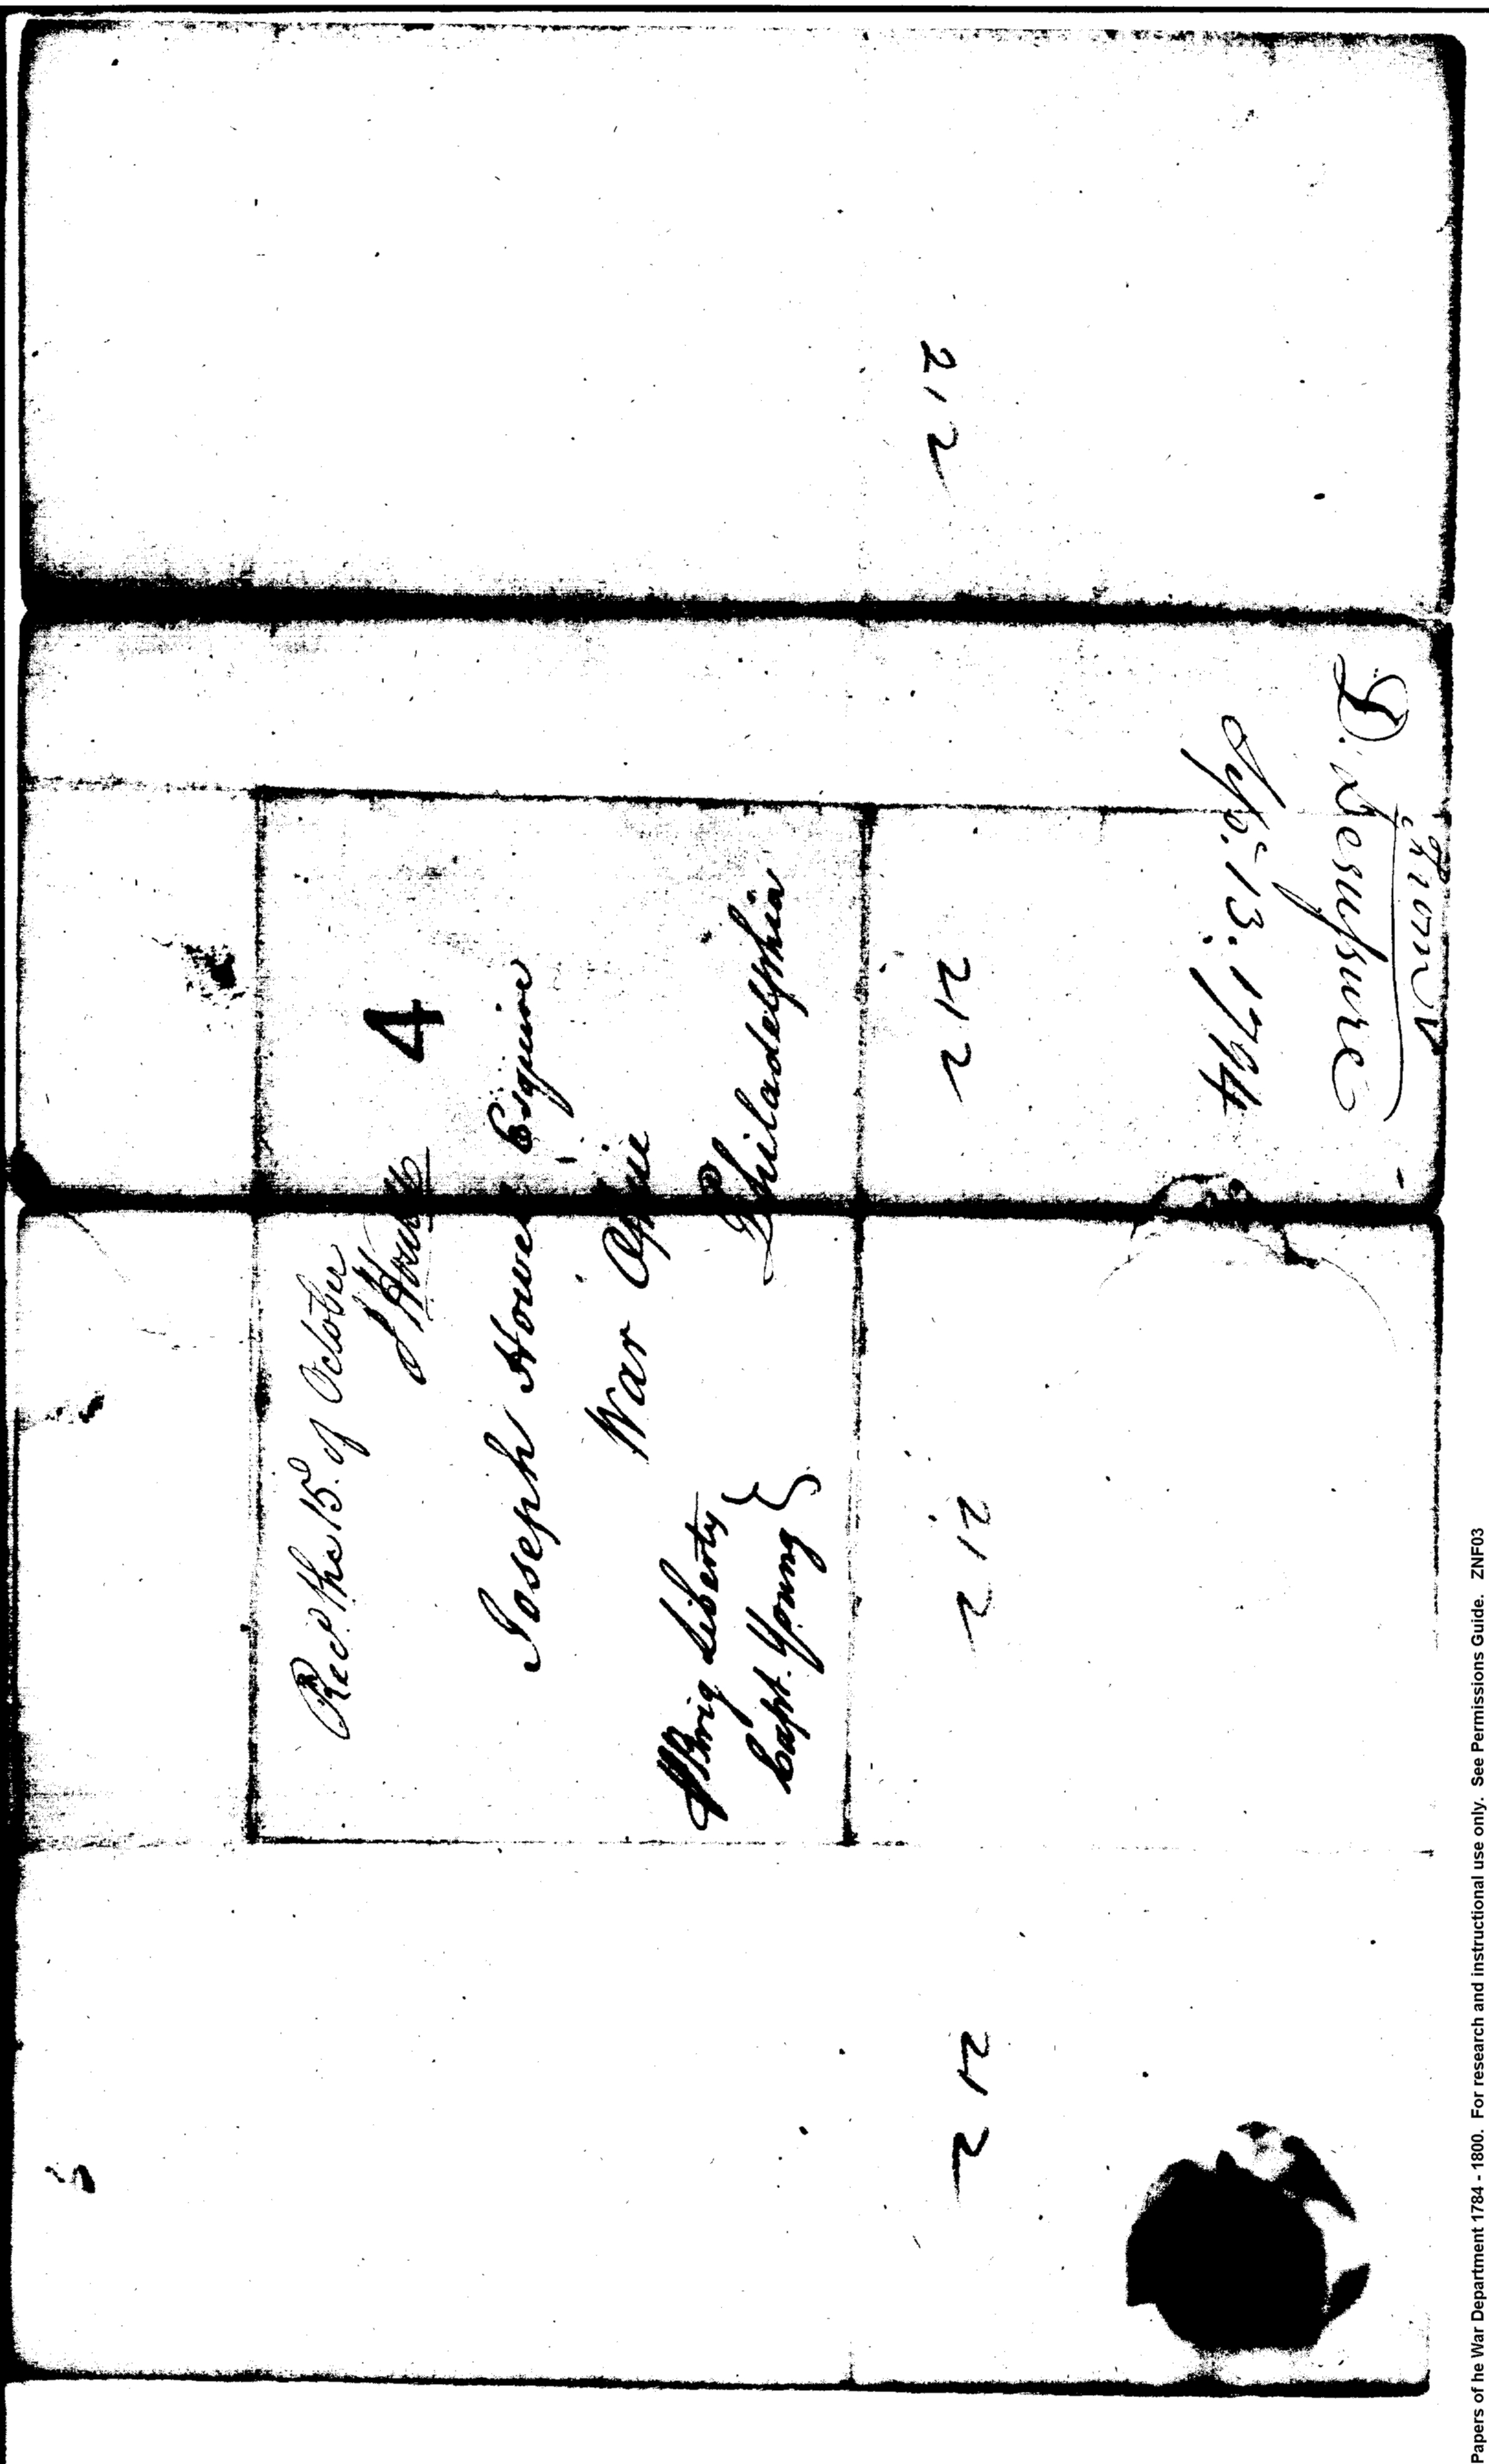 Recd. the 15. of October
J Howell
4
Joseph Howell Esquire
War Office
Philadelphia
Brig Liberty
Capt. Young
From
D. Desaußure
Sept. 13. 1794
212
212
212
212
Papers of he War Department 1784 - 1800. For research and instructional use only. See Permissions Guide. ZNF03